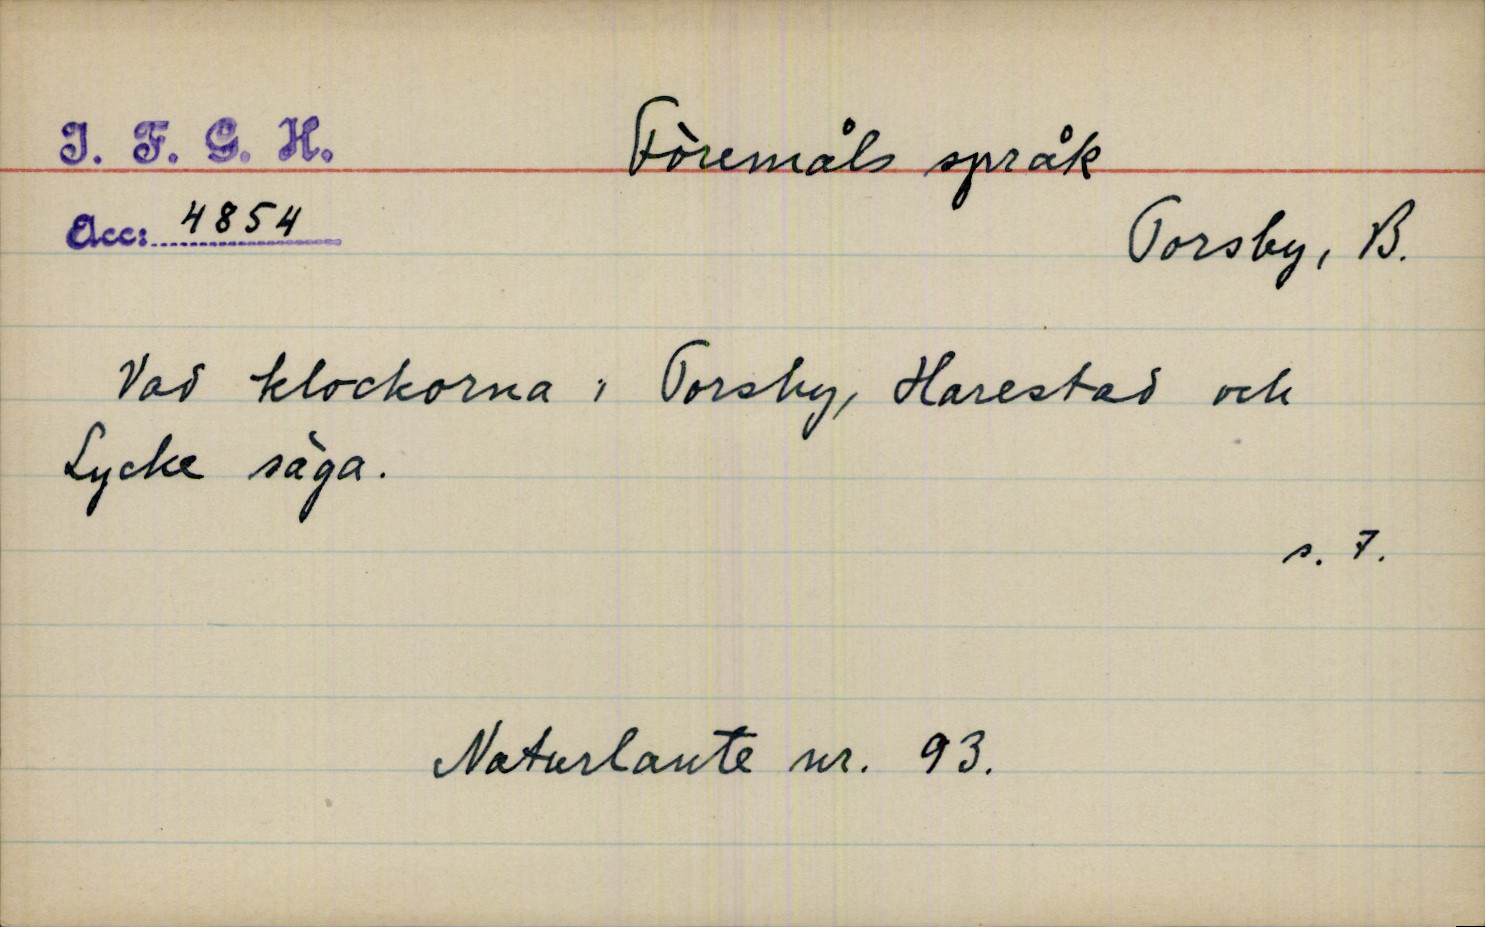 I. F. G. H.
Föremåls språk
Acc: 4854
Torsby, B.
Vad klockorna i Torsby, Harestad och
Lycke säga.
s. 7.
Naturlaute nr. 93.